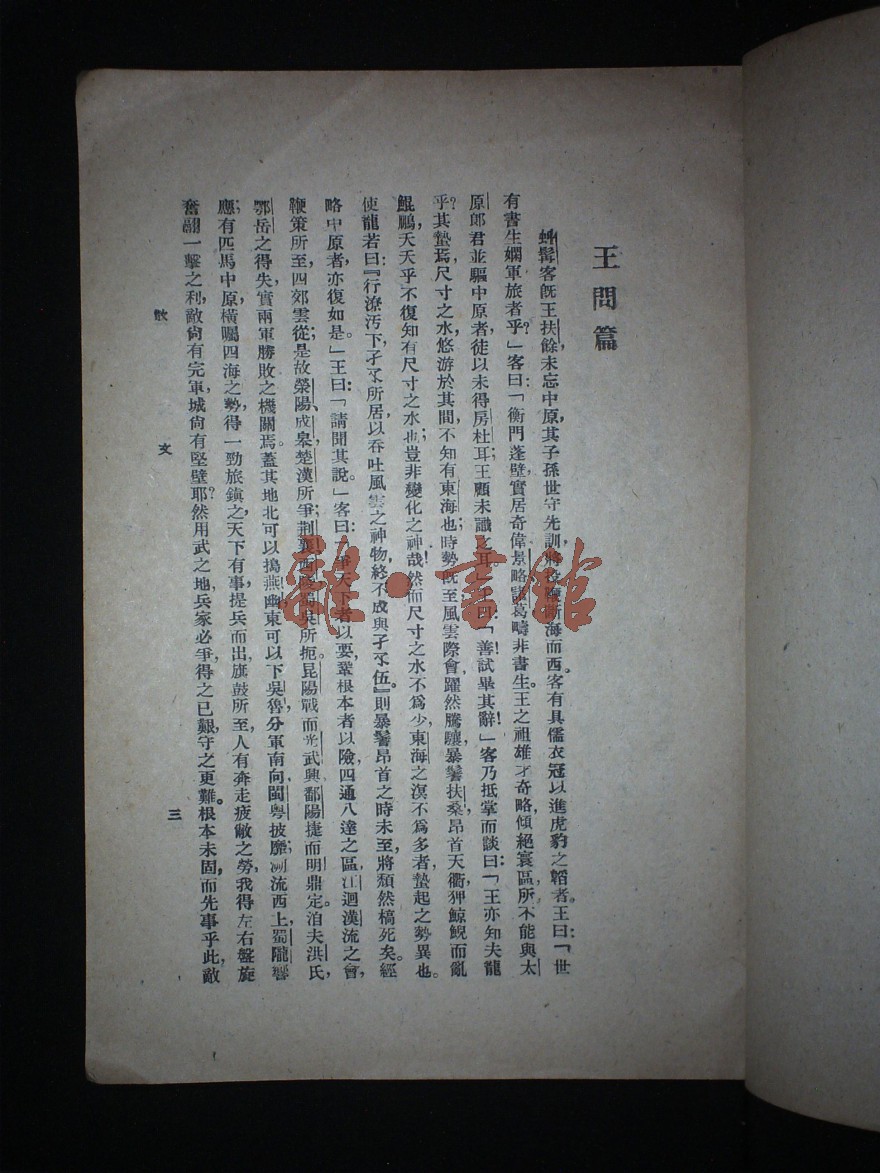 王問篇
虬髯客旣王扶餘,未忘中原,其子孫世守先訓,將斷海而西。客有具儒衣冠以進虎豹之韜者。王曰:「世
有書生嫻軍旅者乎?」客曰:「衡門蓬壁,實居奇偉,景略諸葛,疇非書生。王之祖雄才奇略,傾絕寰區,所不能與太
原郎君並驅中原者,徒以未得房杜耳。王顧未識之耳!」王曰:「善!試畢其辭!」客乃抵掌而談曰:「王亦知夫龍
乎?其蟄焉,尺寸之水,悠游於其間,不知有東海也;時勢旣至,風雲際會,躍然騰驤,暴鬐扶桑,昂首天衢,狎鯨鯢而亂
鯤鵬,夭夭乎不復知有尺寸之水也;豈非變化之神哉!然而尺寸之水不爲少,東海之溟不爲多者,蟄起之勢異也。
使龍若曰:『行潦汚下,孑孓所居,以吞吐風雲之神物,終不成與孑孓伍。』則暴鬐昂首之時未至,將頹然槁死矣。經
略中原者,亦復如是。」王曰:「請聞其說。」客曰:「爭天下者以要,鞏根本者以險,四通八達之區,江迴漢流之會,
鞭策所至,四郊雲從;是故滎陽成皋,楚漢所爭;荆襄西陵,蜀吳所扼。昆陽戰而光武興,鄱陽捷而明鼎定。洎夫洪氏,
鄂岳之得失,實兩軍勝敗之機關焉。蓋其地北可以搗燕幽,東可以下吳魯,分軍南向,閩粵披靡,泝流西上,蜀隴響
應;有匹馬中原,橫矚四海之勢,得一勁旅鎮之,天下有事,提兵而出,旗鼓所至,人有奔走疲敝之勞,我得左右盤旋
奮翮一擊之利,敵尙有完軍,城尙有堅壁耶?然用武之地,兵家必爭,得之已艱,守之更難。根本未固,而先事乎此,敵
散文
三
雜·書館